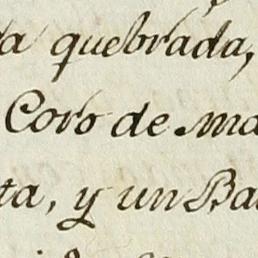 a quebrada,
Coro de ma
ta, y un Ba